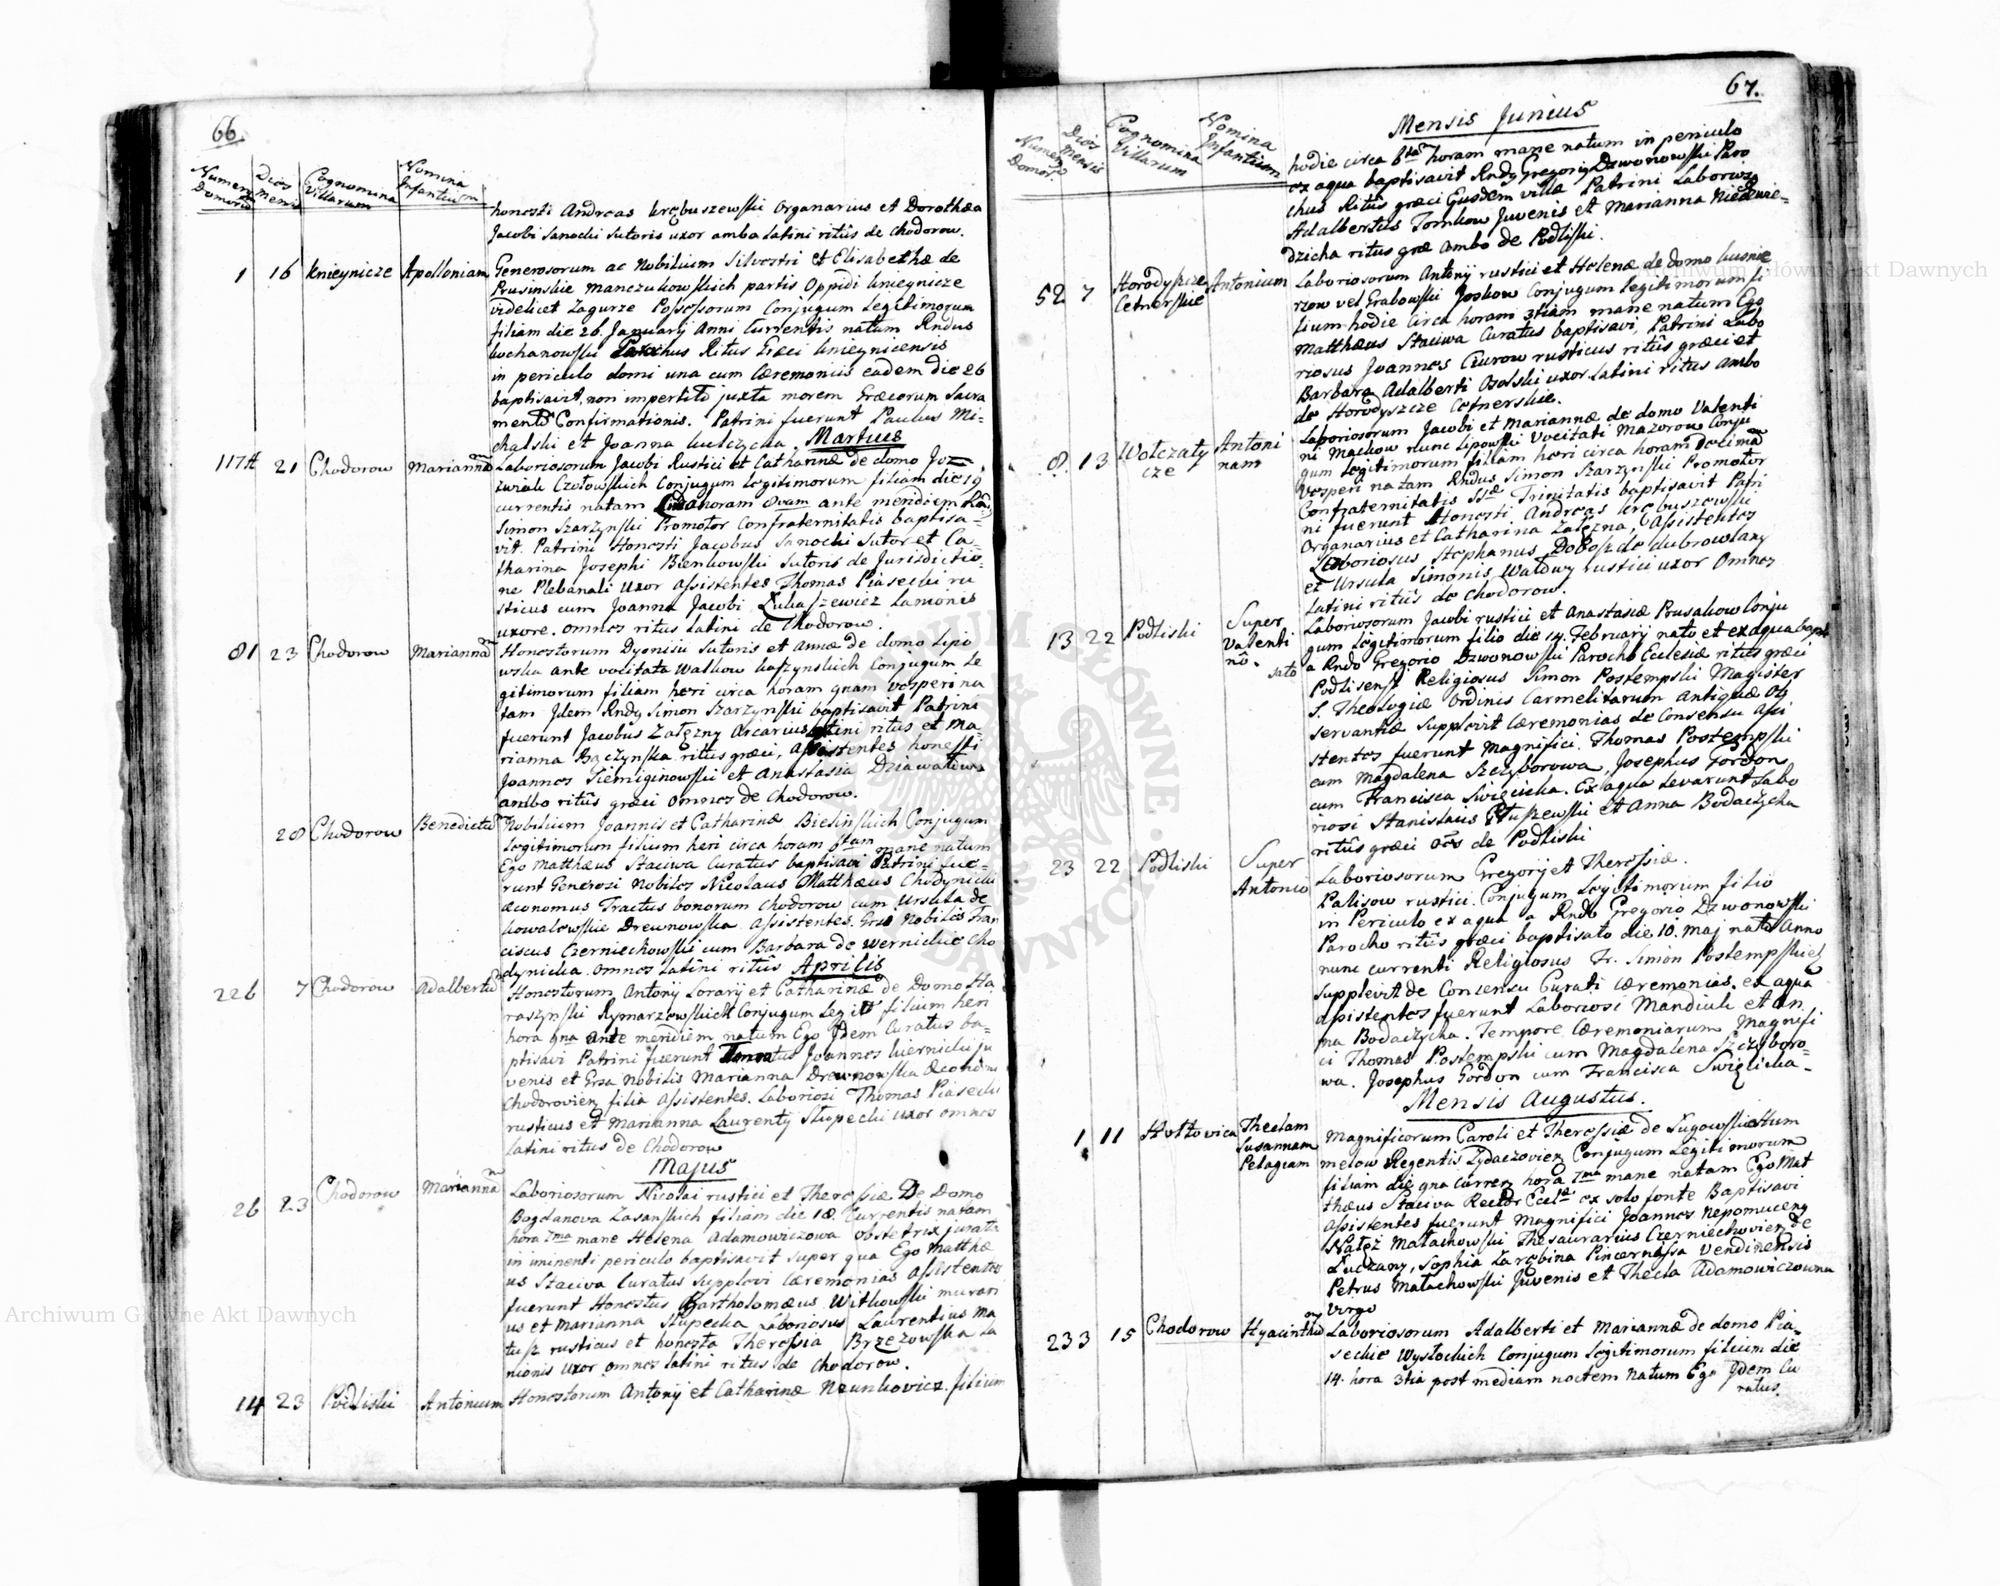 66.
Numerus Domorum
Dies Mensis
Cognomina Villarum
Nomina Infantium
honesti Andreas Krębuszewski Organarius et Dorothea
Jacobi Sanocki Sutoris uxor ambo Latini ritûs de Chodorow.
1 16 Knieynicze Apolloniam Generosorum ac Nobilium Silvestri et Elisabethæ de
Prusinskie Manczukowskich partis Oppidi Knieynicze
videlicet Zagurze Possessorum Conjugum Legitimorum
filiam die 26. Januarij Anni Currentis natam Rndus
Kochanowski Parochus Ritus Græci Knieynicensis
in periculo domi una cum Cæremoniis eadem die 26
baptisavit, non impertito juxta morem Græcorum Sacra
mento Confirmationis. Patrini fuerunt Paulus Mi-
chalski et Joanna Kulczycka. Martius
117 21 Chodorow Mariannam Laboriosorum Jacobi Rustici et Catharinæ de domo Joz
zwiak Czołowskich Conjugum Legitimorum filiam die 19
currentis natam horam 8vam ante meridiem
Simon Szarzynski Promotor Confraternitatis baptisa-
vit. Patrini Honesti Jacobus Sanocki Sutor et Ca-
tharina Josephi Bienkowski Sutoris de Jurisdictio-
ne Plebanali uxor Assistentes Thomas Piasecki ru
sticus cum Joanna Jacobi Łukaszewicz Lanionis
uxore. omnes ritus Latini de Chodorow.
81 23 Chodorow Mariannam Honestorum Dyonisii Sutoris et Annæ de domo Lipo
wska ante vocitata Walkow Kaszynskich Conjugum Le
gitimorum filiam heri circa horam vesperi na
tam Idem Rndus Simon Szarzynski baptisavit Patrini
fuerunt Jacobus Załęzny Arcarius Latini ritus et Ma-
rianna Bączynska ritus græci, Assistentes honesti
Joannes Siemiginowski et Anastasia
ambo ritûs græci omnes de Chodorow.
28 Chodorow Benedictum Nobilium Joannis et Catharinæ Bielinskich Conjugum
Legitimorum filium heri circa horam 6tam mane natum
Ego Matthæus Staciwa Curatus baptisavi Patrini fue-
runt Generosi Nobiles Nicolaus Matthæus Chodynicki
æconomus Tractus bonorum Chodorow cum Ursula de
Kowalewskie Drewnowska Assistentes Nobilis Fran
ciscus Czerniechowski cum Barbara de Wernickie Cho
dynicka omnes Latini ritûs Aprilis
226 7 Chodorow Adalbertum Honestorum Antonij Lorarij et Catharinæ de Domo Ha
raszynski Rymarzewskich Conjugum Legit filium heri
hora 9na ante meridiem natum Ego Idem Curatus ba-
ptisavi Patrini fuerunt Joannes Kiernicki ju
venis et Grsa Nobilis Marianna Drewnowska
Chodorovien filia Assistentes. Laboriosi Thomas Piasecki
rusticus et Marianna Laurentij Stupecki uxor omnes
Latini ritus de Chodorow
Majus
26 23 Chodorow Mariannam Laboriosorum Nicolai rustici et Theressiæ De Domo
Bogdanova Zasanskich filiam die 18. Currentis natam
hora 7ma mane Helena Adamowiczowa obstetrix jurata
in iminenti periculo baptisavit super qua Ego Matthæ
us Staciwa Curatus Supplevi Cæremonias Assistentes
fuerunt Honestus Bartholomæus Witkowski murari
us et Marianna Stupecka Laboriosus Laurentius Ma
tusz rusticus et honesta Theressia Brzezowska La
nionis uxor omnes Latini ritus de Chodorow.
14 23 Podliski Antonium Honestorum Antonij et Catharinæ filium
67.
Numerus Domor.
Dies Mensis
Cognomina Villarum
Nomina Infantium
Mensis Junius
hodie circa 6tam horam mane natum in periculo
ex aqua baptisavit Rndus Gregorij Dzwonowski Paro
chus Ritûs græci Ejusdem villæ Patrini Laboriosus
Adalbertus Tomkow Juvenis et Marianna Niedzwie-
dzicha ritus græ ambo de Podliski.
52 7 Horodyszcze Cetnerskie Antonium Laboriosorum Antonij rustici et Helenæ de domo
rzow vel Grabowski Joskow Conjugum Legitimorum fi
lium hodie circa horam 3tiam mane natum Ego
Matthæus Staciwa Curatus baptisavi, Patrini Labo
riosus Joannes Czurow rusticus ritûs græci et
Barbara Adalberti Osolski uxor Latini ritus ambo
de Horodyszcze Cetnerskie.
8. 13 Wołczaty cze Antoni nam Laboriosorum Jacobi et Mariannæ de domo Valenti
ni Mackow nunc Lipowski Vocitati Mazorow Conju
gum Legitimorum filiam heri circa horam decimam
vesperi natam Rndus Simon Szarzynski Promotor
Confraternitatis Ssæ Trinitatis baptisavit Patri
ni fuerunt Honesti Andreas Krębuszewski
Organarius et Catharina Załęzna, Assistentes
Laboriosus Stephanus Dobosz de Dubrowlany
et Ursula Simonis Waldwy rustici uxor Omnes
Latini ritûs de Chodorow.
13 22 Podliski Super Valenti nô. nato Laboriosorum Jacobi rustici et Anastasiæ Prusakow Conju
gum Legitimorum filio die 14. Februarij nato et ex aqua bapt
a Rndo Gregorio Dzwonowski Parocho Ecclesiæ ritûs græci
Podlisensi Religiosus Simon Postempski Magister
S. Theologiæ Ordinis Carmelitarum Antiquæ Ob
servantiæ Supplevit Cæremonias de Consensu Assi
stentes fuerunt Magnifici. Thomas Postempski
cum Magdalena Szczyborowa, Josephus Gordon
cum Francisca Swięcicka. Ex aqua levarunt Labo
riosi Stanislaus Ptuszewski et Anna Bodaczycka
ritûs græci oes de Podliski
23 22 Podliski Super Antonio Laboriosorum Gregorij et Theressiæ.
Palisow rustici. Conjugum Legitimorum filio
in Periculo ex aqua a Rndo Gregorio Dzwonowski
Parocho ritûs græci baptisato die 10. Maj nato Anno
nunc currenti Religiosus Fr. Simon Postempski
Supplevit de Consensu Curati Cæremonias. ex aqua
Assistentes fuerunt Laboriosi Mandiuk et An
na Bodaczycka. Tempore Cæremoniarum Magnifi
ci Thomas Postempski cum Magdalena Szczyboro-
wa. Josephus Gordon cum Francisca Swięcicka-
Mensis Augustus.
1 11 Hottovica Theclam Susannam Pelagiam Magnificorum Caroli et Theressiæ de Ługowski
melow Regentis Zydaczovien Conjugum Legitimorum
filiam die 9na curren hora 7ma mane natam Ego Mat
thæus Staciwa Rector Ecclæ ex solo fonte Baptisavi
Assistentes fuerunt Magnifici Joannes Nepomucenus
Nałęz Małachowski Thesaurarius Czerniechovien de
Łuczany, Sophia Zarębina Pincernissa Vendinensis
Petrus Małachowski Juvenis et Thecla Adamowiczowna
Virgo
233 15 Chodorow Hyacinthum Laboriosorum Adalberti et Mariannæ de domo Pia-
seckie Wysłockich Conjugum Legitimorum filium die
14. hora 3tia post mediam noctem natum Ego Idem Cu
ratus.
Archiwum Główne Akt Dawnych
Archiwum Główne Akt Dawnych
ARCHIWUM GŁÓWNE AKT DAWNYCH